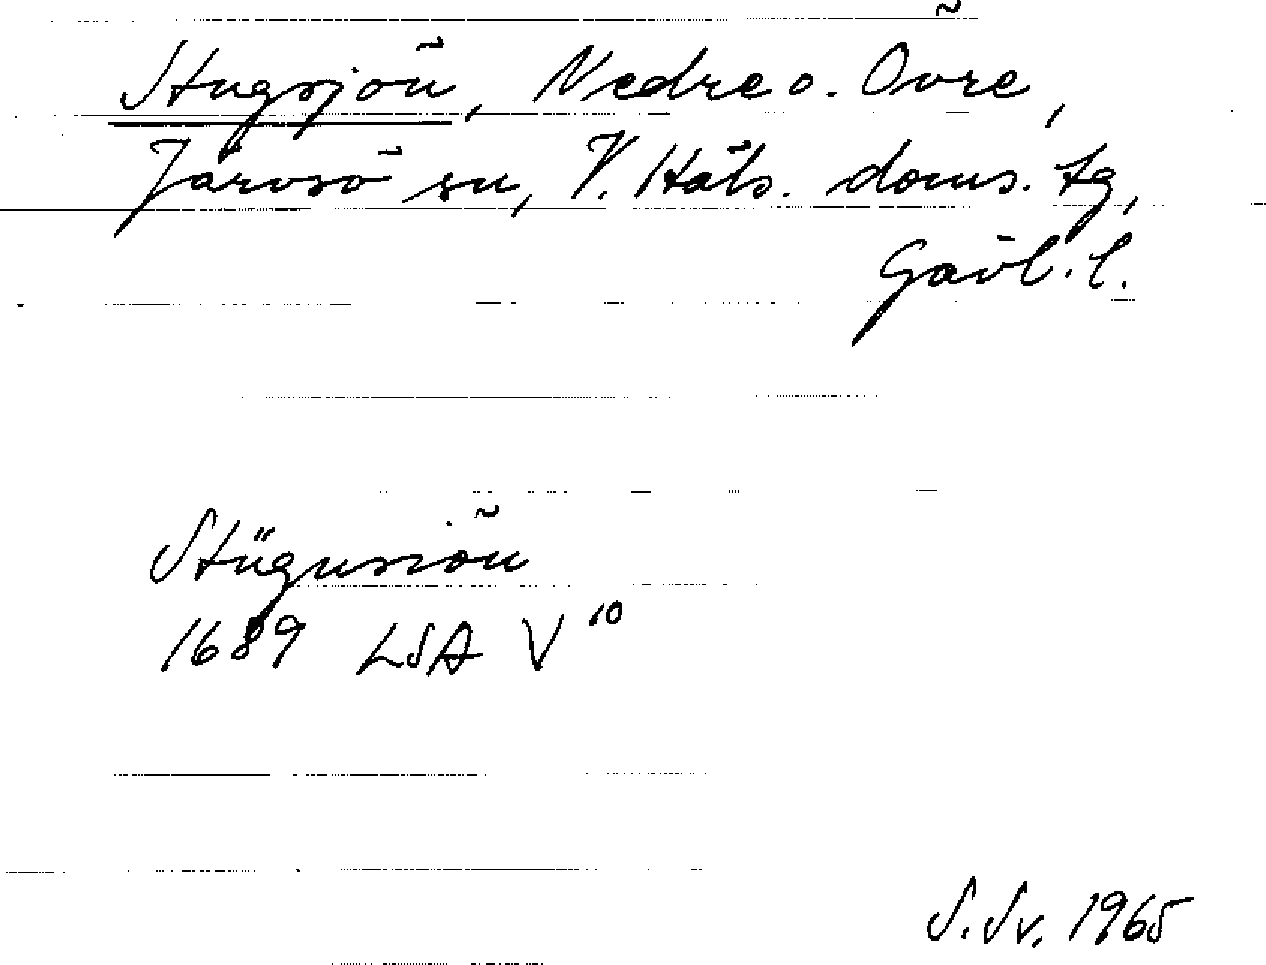 Stugsjön, Nedre o. Övre,
Järvsö sn, V. Häls. doms. tg,
Gävl. l.
Stügusiön
1689 LSA V 10
S. Sv. 1965